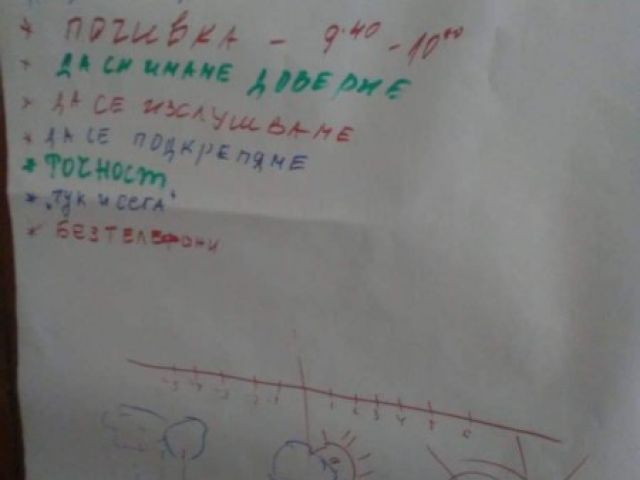 * ПОЧИВКА - 9.40 - 10 00
* ДА СИ ИМАМЕ ДОВЕРИЕ
* ДА СЕ ИЗСЛУШВАМЕ
* ДА СЕ ПОДКРЕПЯМЕ
* ТОЧНОСТ
* „ТУК И СЕГА"
* БЕЗ ТЕЛЕФОНИ